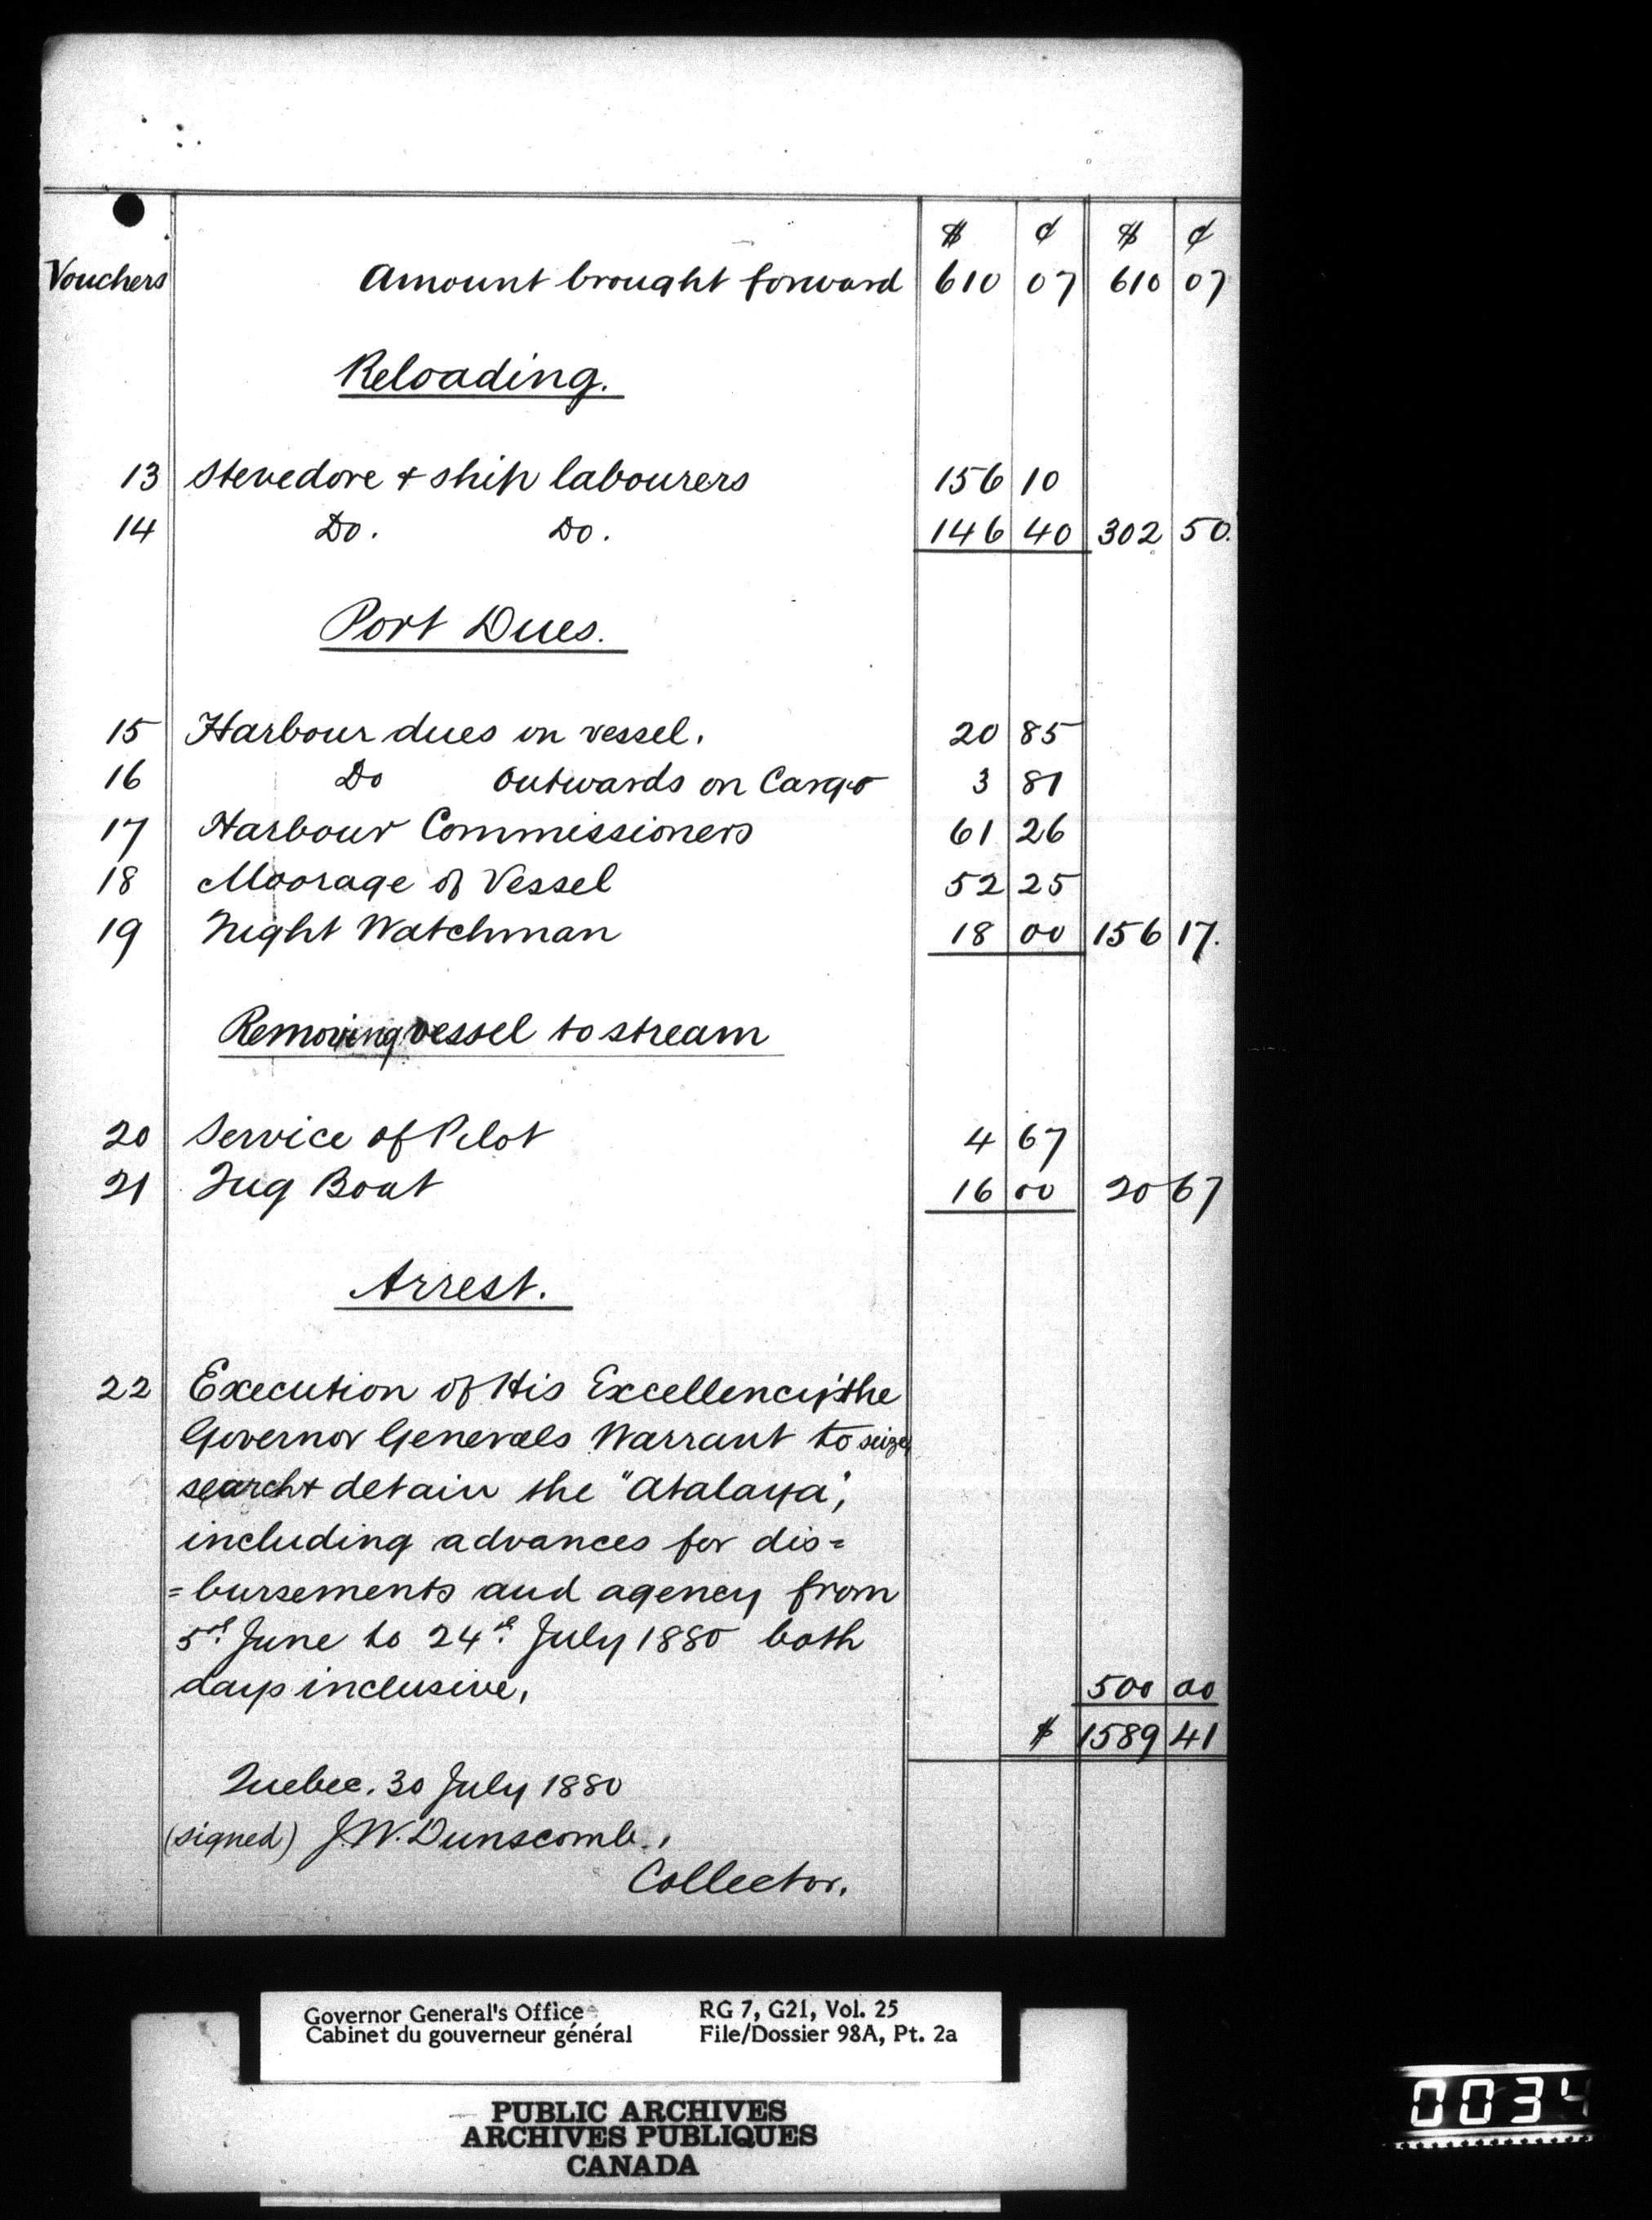 $ ¢ $ ¢
Vouchers Amount brought forward 610 07 610 07
Reloading.
13 Stevedore & ship labourers 156 10
14 Do. Do. 146 40 302 50.
Port Dues.
15 Harbour dues on vessel. 20 85
16 Do Outwards on Cargo 3 81
17 Harbour Commissioners 61 26
18 Moorage of Vessel 52 25
19 Night Watchman 18 00 156 17.
Removing vessel to stream
20 Service of Pilot 4 67
21 Tug Boat 16 00 20 67
Arrest.
22 Execution of His Excellency the
Governor Generals Warrant to seize,
search & detain the "Atalaya",
including advances for dis=
=bursements and agency from
5th June to 24th July 1880 both
days inclusive, 500 00
$ 1589 41
Quebec. 30 July 1880
(signed) J.W. Dunscomb.,
Collector.
Governor General's Office RG 7, G21, Vol. 25
Cabinet du gouverneur général File/Dossier 98A, Pt. 2a
PUBLIC ARCHIVES
ARCHIVES PUBLIQUES
CANADA
0034